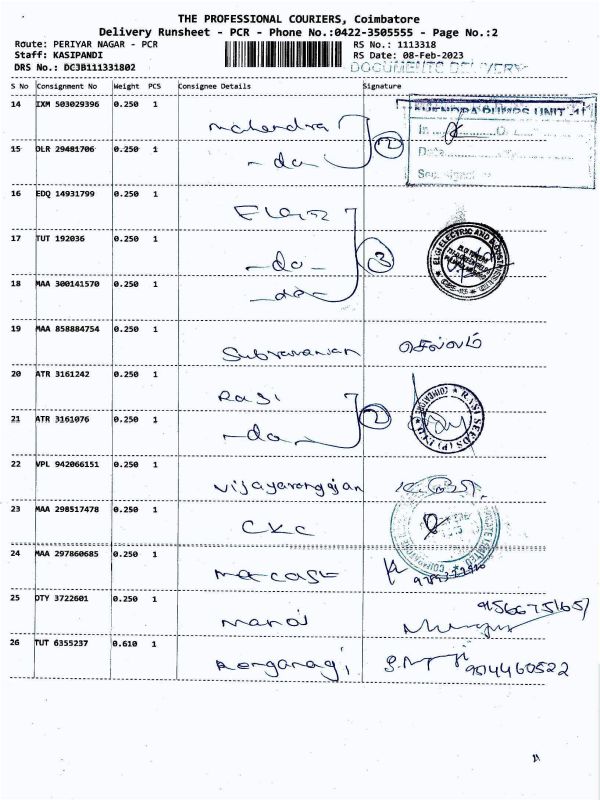 THE PROFESSIONAL COURIERS, Coimbatore
Delivery Runsheet - PCR - Phone No.:0422-3505555 - Page No.:2
Route: PERIYAR NAGAR - PCR
RS No.: 1113318
Staff: KASIPANDI
RS Date: 08-Feb-2023
DRS No.: DCJB111331802
DOCUMENTS DELIVERY
S No Consignment No Weight PCS Consignee Details Signature
14 IXM 503029396 0.250 1
Mahendra
2
15 DLR 29481706 0.250 1
-do-
16 EDQ 14931799 0.250 1
Elgi
17 TUT 192036 0.250 1
-do-
3
18 MAA 300141570 0.250 1
-do-
19 MAA 858884754 0.250 1
Subramanian செல்வம்
20 ATR 3161242 0.250 1
Rasi
2
RASI SEEDS (P) LTD COIMBATORE
21 ATR 3161076 0.250 1
-do-
22 VPL 942066151 0.250 1
Vijayarengajan
23 MAA 298517478 0.250 1
CKC
24 MAA 297860685 0.250 1
25 DTY 3722601 0.250 1
Manoj
26 TUT 6355237 0.610 1
Renganagi
9014460522